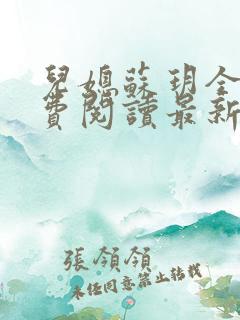 兒媳蘇玥全
費閱讀最新
張領領
未經同意禁止轉載